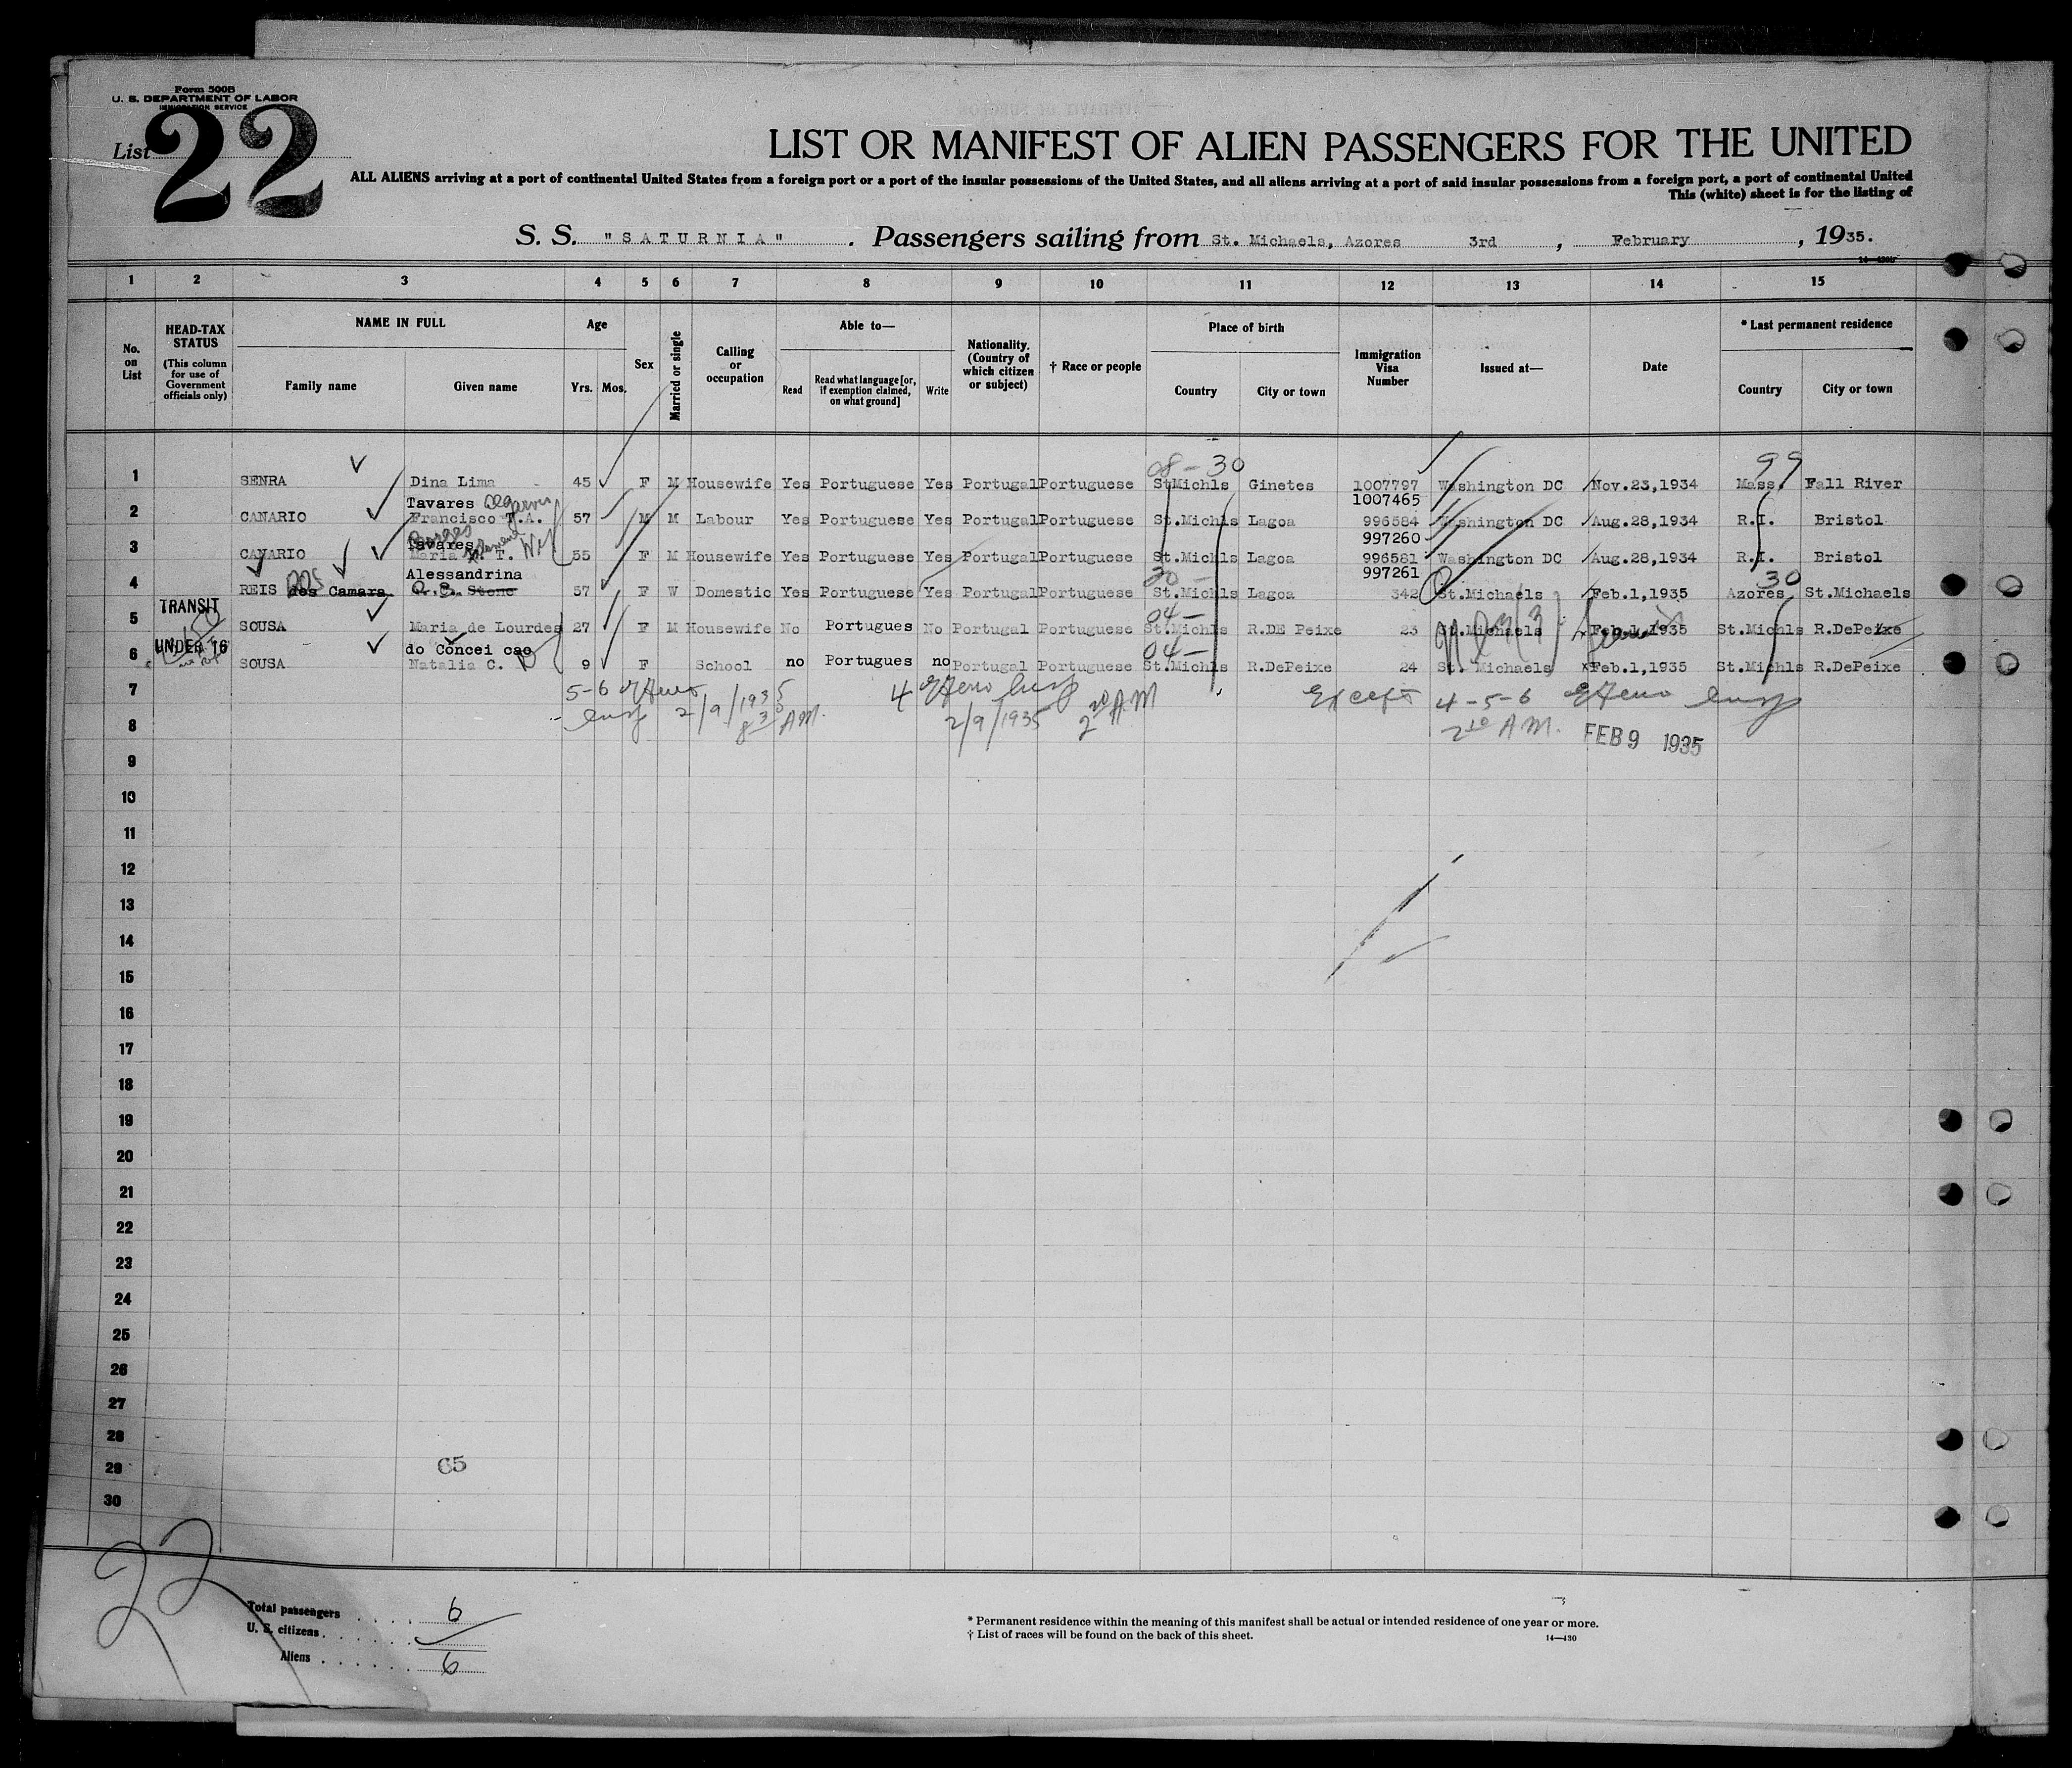 Form 500B
U. S. DEPARTMENT OF LABOR
IMMIGRATION SERVICE
List 22
LIST OR MANIFEST OF ALIEN PASSENGERS FOR THE UNITED
ALL ALIENS arriving at a port of continental United States from a foreign port or a port of the insular possessions of the United States, and all aliens arriving at a port of said insular possessions from a foreign port, a port of continental United
This (white) sheet is for the listing of
S. S. "SATURNIA" . Passengers sailing from St. Michaels, Azores 3rd , February , 1935.
1 2 3 4 5 6 7 8 9 10 11 12 13 14 15
No. on List
HEAD-TAX STATUS (This column for use of Government officials only)
NAME IN FULL Family name Given name
Age Yrs. Mos.
Sex
Married or single
Calling or occupation
Able to— Read Read what language [or, if exemption claimed, on what ground] Write
Nationality. (Country of which citizen or subject)
† Race or people
Place of birth Country City or town
Immigration Visa Number
Issued at—
Date
* Last permanent residence Country City or town
08-30 99
1 SENRA Dina Lima 45 F M Housewife Yes Portuguese Yes Portugal Portuguese StMichls Ginetes 1007797 Washington DC Nov.23,1934 Mass. Fall River
Tavares 1007465
2 CANARIO Francisco T.A. 57 M M Labour Yes Portuguese Yes Portugal Portuguese St.Michls Lagoa 996584 Washington DC Aug.28,1934 R.I. Bristol
Tavares 997260
3 CANARIO Maria T. 55 F M Housewife Yes Portuguese Yes Portugal Portuguese St.Michls Lagoa 996581 Washington DC Aug.28,1934 R.I. Bristol
Alessandrina 30- 997261 30
4 REIS dos des Camara 57 F W Domestic Yes Portuguese Yes Portugal Portuguese St.Michls Lagoa 342 St.Michaels Feb.1,1935 Azores St.Michaels
TRANSIT 04-
5 SOUSA Maria de Lourdes 27 F M Housewife No Portugues No Portugal Portuguese St.Michls R.DE Peixe 23 St.Michaels Feb.1,1935 St.Michls R.DePeixe
UNDER 16 do Concei cao 04-
6 SOUSA Natalia C. 9 F School no Portugues no Portugal Portuguese St.Michls R.DePeixe 24 St. Michaels Feb.1,1935 St.Michls R.DePeixe
7 5-6 4 Except 4-5-6
8 2/9/1935 830 AM. 2/9/1935 AM AM. FEB 9 1935
9
10
11
12
13
14
15
16
17
18
19
20
21
22
23
24
25
26
27
28
29 65
30
22
Total passengers . . . . 6
U. S. citizens . . . . . .
Aliens . . . . . . 6
* Permanent residence within the meaning of this manifest shall be actual or intended residence of one year or more.
† List of races will be found on the back of this sheet. 14—430